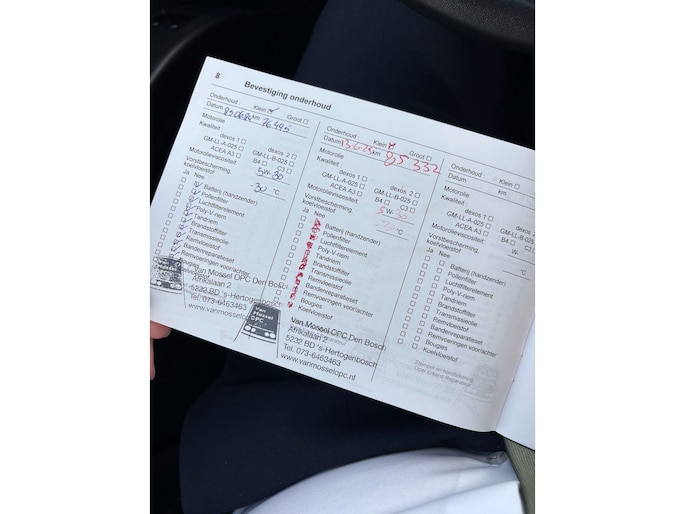 8
Bevestiging onderhoud
Onderhoud Klein Groot
Datum km 76.495
Motorolie
Kwaliteit
dexos 1 dexos 2
GM-LL-A-025 GM-LL-B-025
ACEA A3 B4 C3
Motorolieviscositeit 5 W- 30
Vorstbescherming,
koelvloeistof -30 °C
Ja Nee
Batterij (handzender)
Pollenfilter
Luchtfilterelement
Poly-V-riem
Tandriem
Brandstoffilter
Transmissieolie
Remvloeistof
Bandenreparatieset
Remvoeringen voor/achter
Bougies
Koelvloeistof
Van Mossel OPC Den Bosch
Afrikalaan 2
5232 BD 's-Hertogenbosch
Tel. 073-6463463
www.vanmosselopc.nl
Onderhoud Klein Groot
Datum km 85 332
Motorolie
Kwaliteit
dexos 1 dexos 2
GM-LL-A-025 GM-LL-B-025
ACEA A3 B4 C3
Motorolieviscositeit 5 W- 30
Vorstbescherming,
koelvloeistof °C
Ja Nee
Batterij (handzender)
Pollenfilter
Luchtfilterelement
Poly-V-riem
Tandriem
Brandstoffilter
Transmissieolie
Remvloeistof
Bandenreparatieset
Remvoeringen voor/achter
Bougies
Koelvloeistof
Van Mossel OPC Den Bosch
Afrikalaan 2
5232 BD 's-Hertogenbosch
Tel. 073-6463463
www.vanmosselopc.nl
Onderhoud Klein
Datum km
Motorolie
Kwaliteit
dexos 1 dexos 2
GM-LL-A-025 GM-LL-B-025
ACEA A3 B4 C3
Motorolieviscositeit W-
Vorstbescherming,
koelvloeistof °C
Ja Nee
Batterij (handzender)
Pollenfilter
Luchtfilterelement
Poly-V-riem
Tandriem
Brandstoffilter
Transmissieolie
Remvloeistof
Bandenreparatieset
Remvoeringen voor/achter
Bougies
Koelvloeistof
Stempel en handtekening
Opel Erkend Reparateur